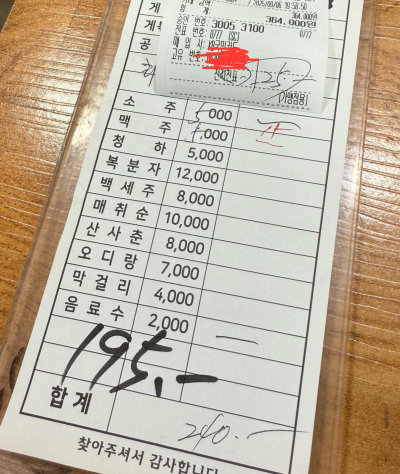 / 2025/09/06 19:58:50
금 액: 364,000원
364,000원
승인 번호: 3005 3100
전표 번호: 0777 0777
매 입 사:
고유 번
(가맹점용)
게
게
공
소 주 5,000
맥 주 5,000 正
청 하 5,000
복 분 자 12,000
백 세 주 8,000
매 취 순 10,000
산 사 춘 8,000
오 디 랑 7,000
막 걸 리 4,000
음 료 수 2,000 一
195.-
합계
240.-
찾아주셔서 감사합니다